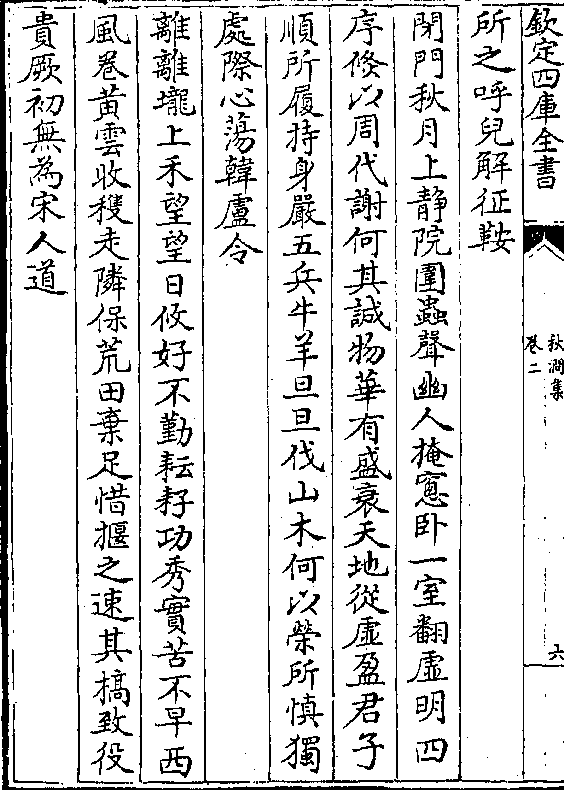 欽定四庫全書
秋澗集
卷二
六
所之呼兒解征鞍
閉門秋月上静院圍蟲聲幽人掩窓卧一室翻虛明四
序倏以周代謝何其誠物華有盛衰天地從虛盈君子
順所履持身嚴五兵牛羊旦旦伐山木何以榮所慎獨
處際心蕩韓盧令
離離壠上禾望望日攸好不勤耘耔功秀實苦不早西
風卷黃雲收穫走隣保荒田棄足惜揠之速其槁致役
貴厥初無為宋人道